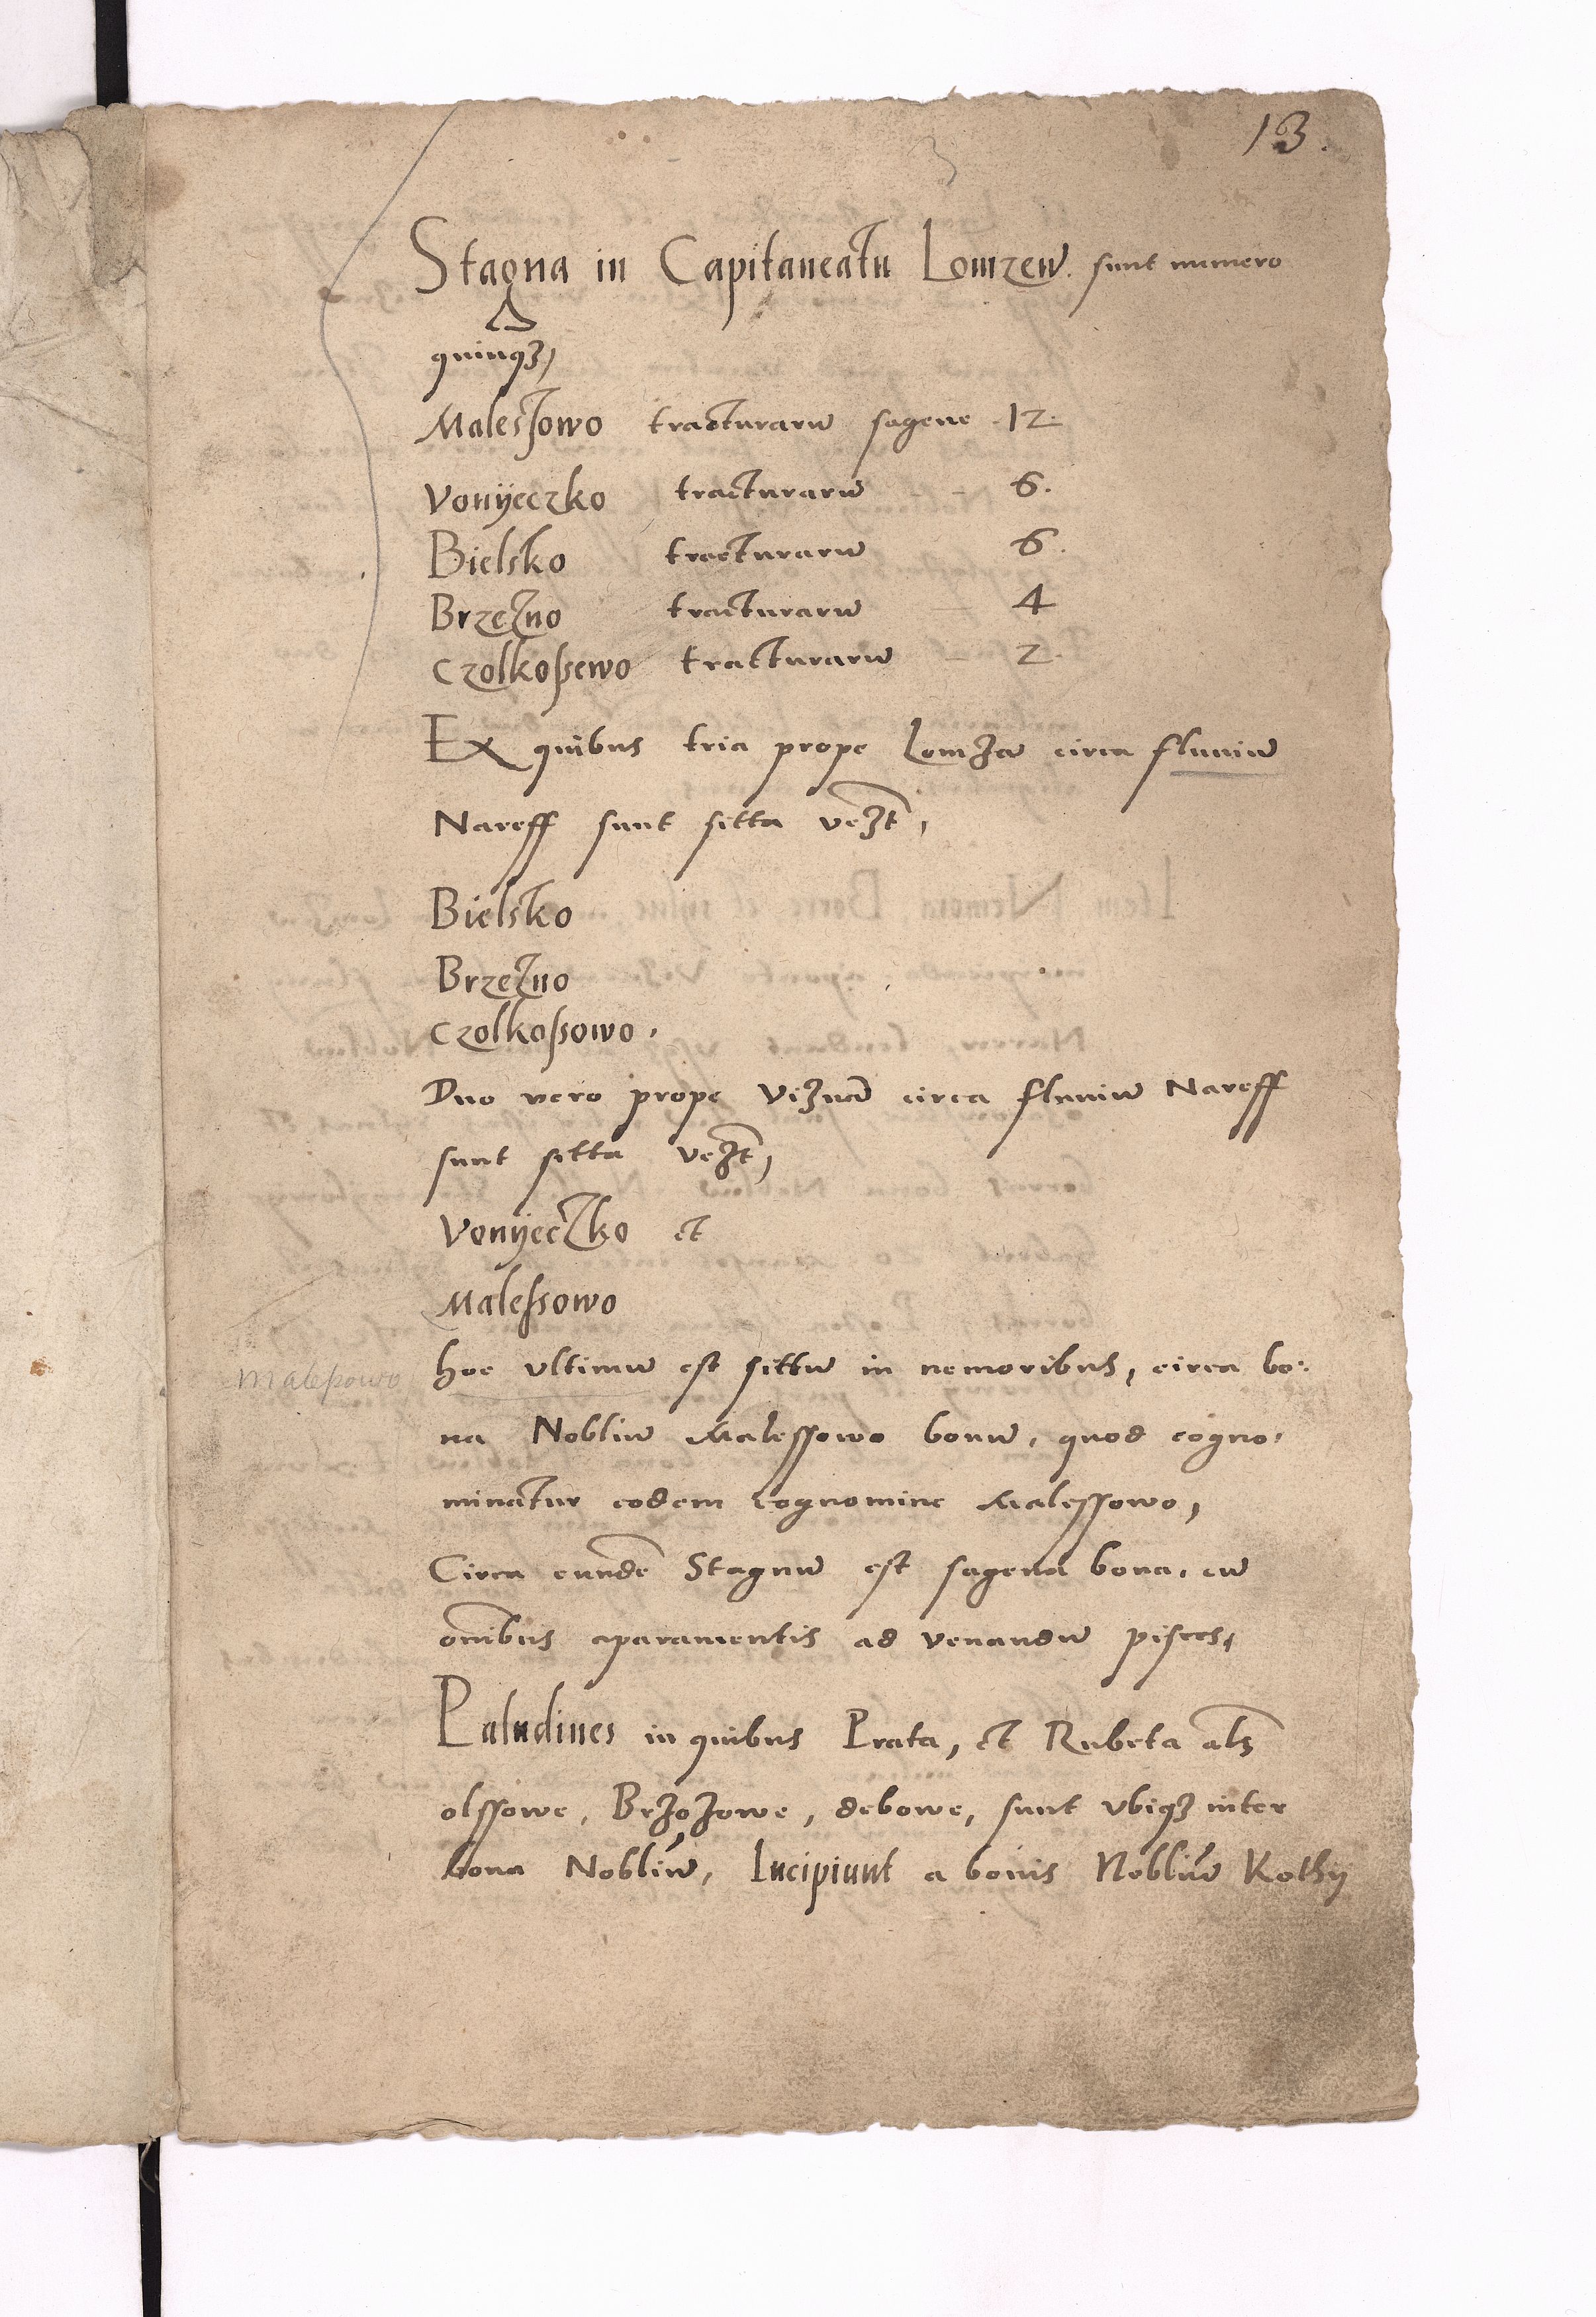 13.
Stagna in Capitaneatu Lomzeñ. sunt numero
quinqꝫ,
Malessowo tracturarū sagene 12.
Vonÿeczko tracturarū - - 6.
Bielsko tracturarū 6.
Brzezno tracturarū 4
Czolkoßewo tracturarū - 2.
Ex quibus tria prope Lomzā circa fluuiū
Nareff sunt sitta vezt,
Bielsko
Brzezno
Czolkoßowo.
Duo vero prope Viznā circa fluuiū Nareff
sunt sitta vezt,
Vonÿeczko et
Maleßowo
Maleßowo
hoc vltimū est sittū in nemoribus, circa bo:
na Nobliū Malessowo bonū, quod cogno:
minatur eodem cognomine Malessowo,
Circa eundē Stagnū est sagena bona, cū
oñibus aparamentis ad venandū pisces,
Paludines in quibus Prata, et Rubeta als
olssowe, Brzozowe, debowe, sunt vbiqꝫ inter
bona Nobliū, Incipiunt a bonis Nobliū Kothÿ